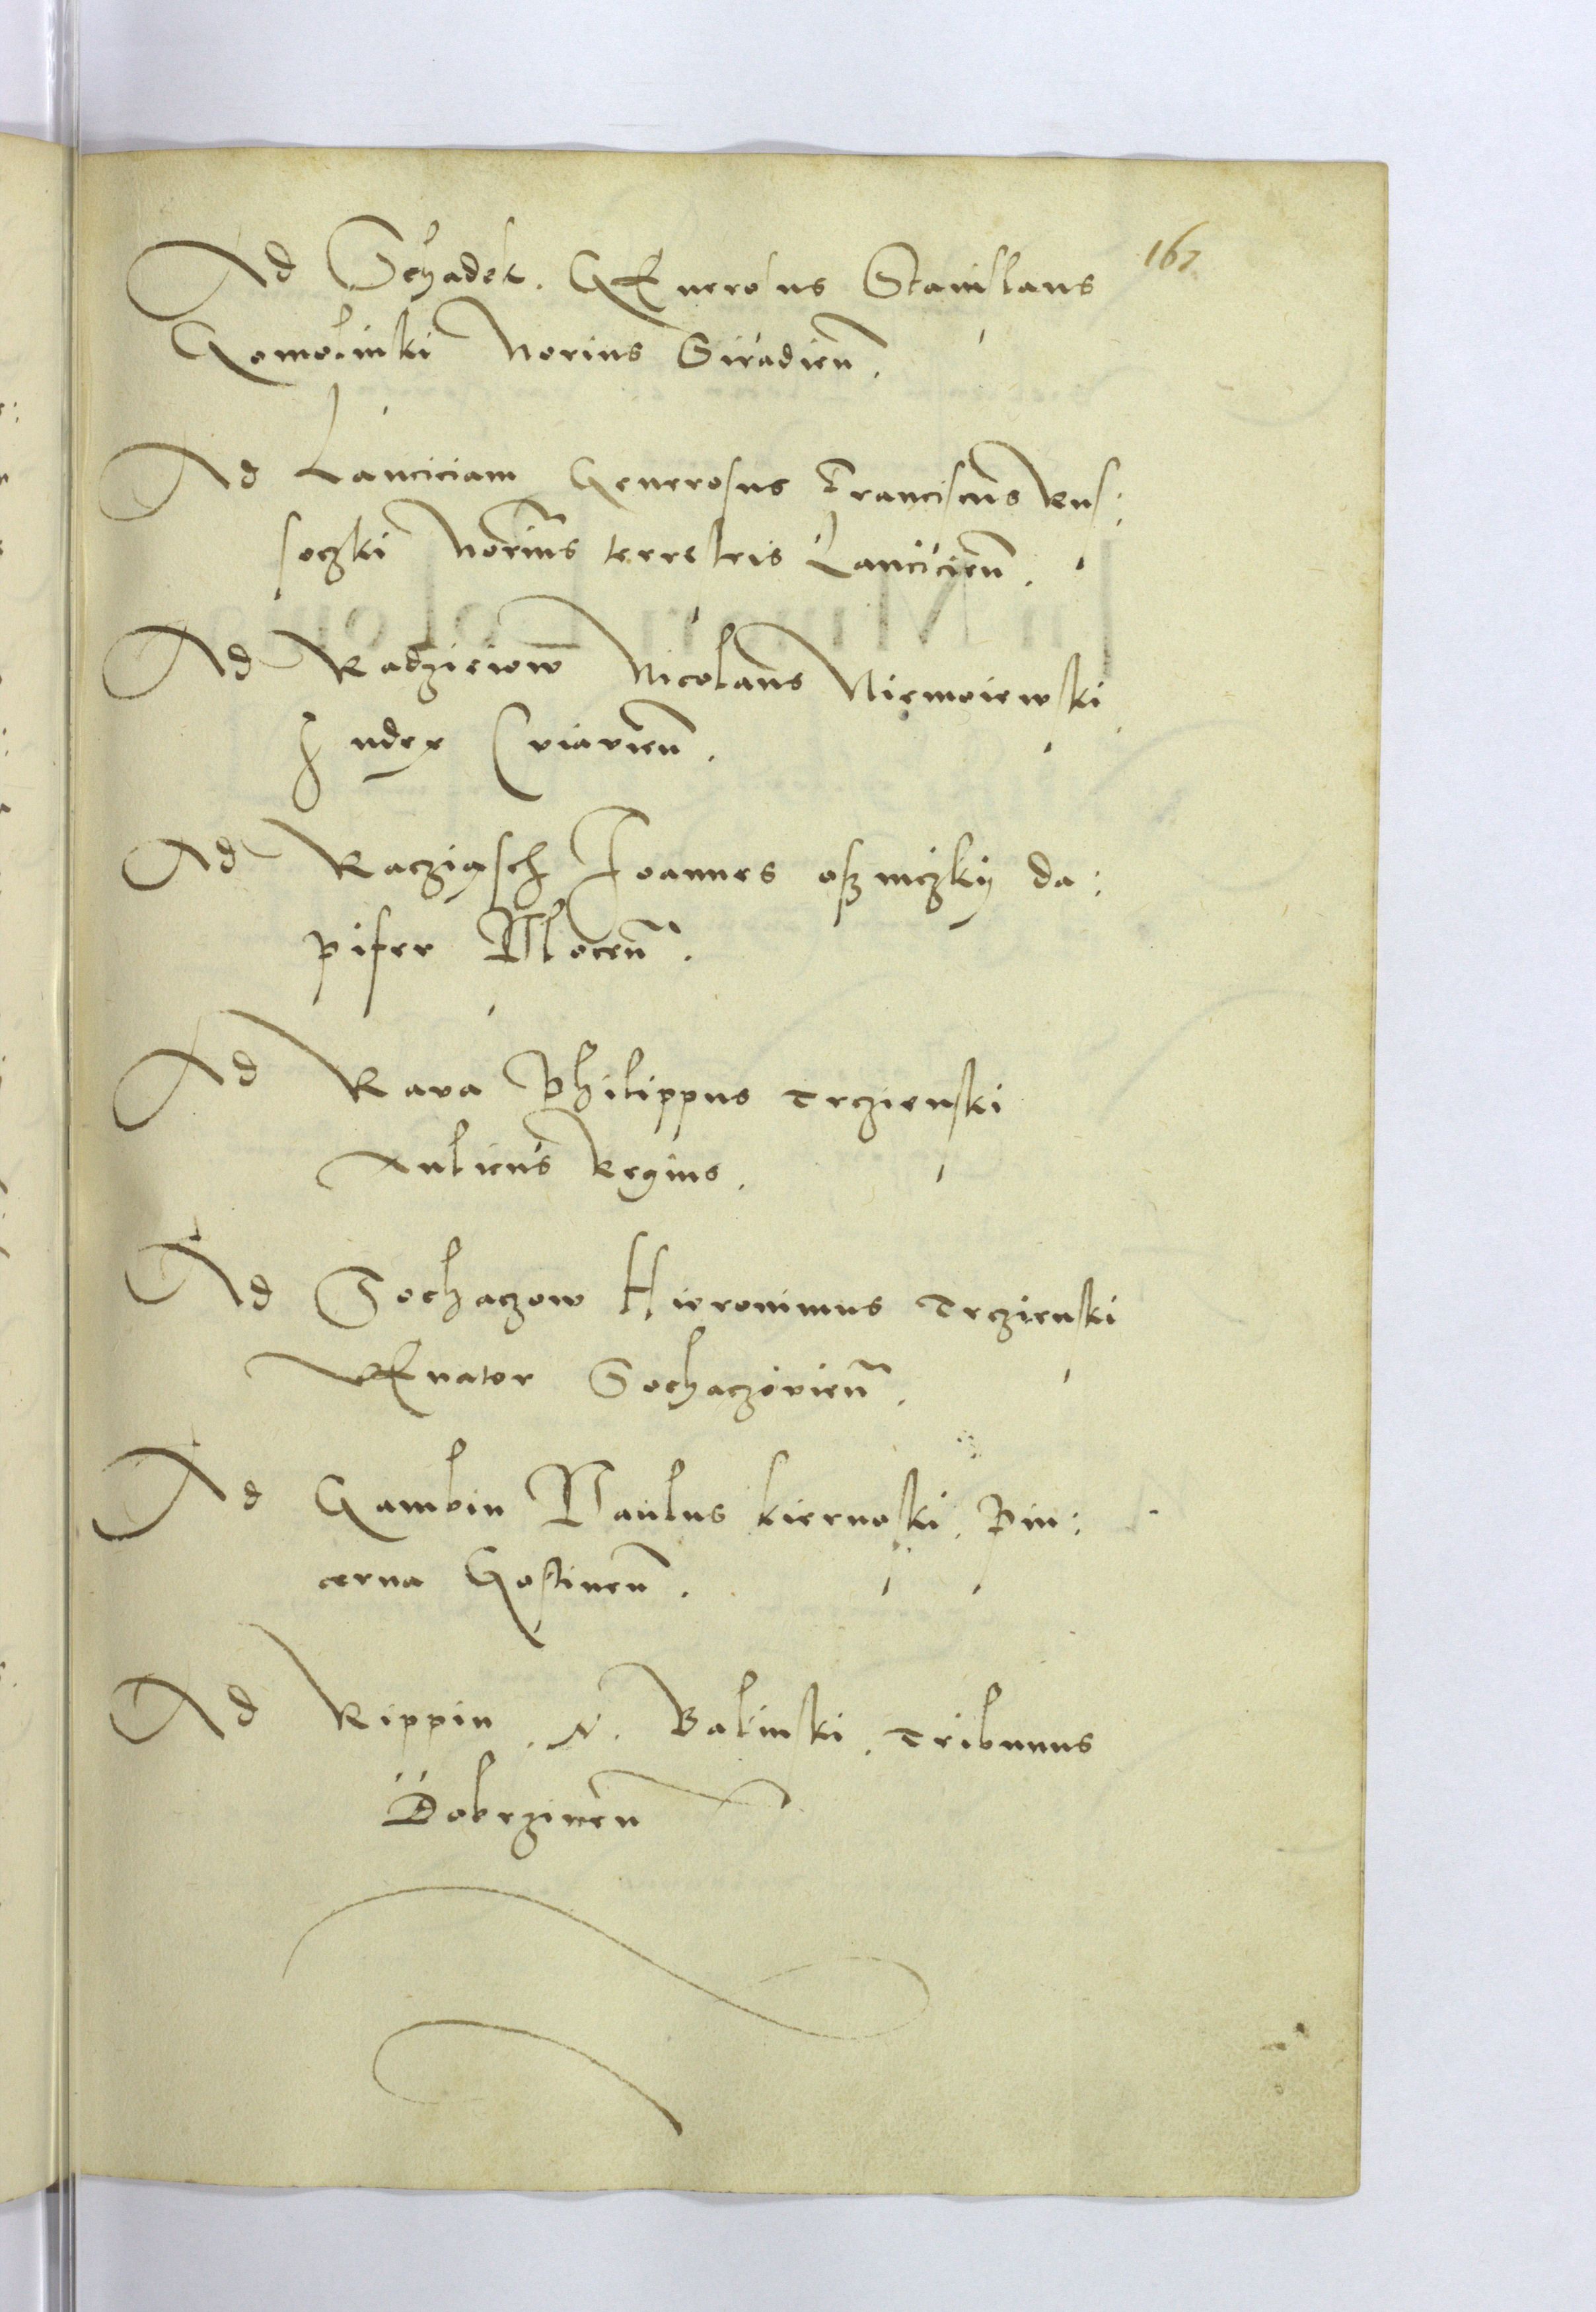 167
Ad Schadek. GEnerosus Stanislaus
Gomolinski Norius Siradien̄.
Ad Lanciciam Generosus Franciscus Rus:
soczki Norius terrestris Lancicien̄.
Ad Radzieiow Nicolaus Niemoiewski
Iudex Cuiavien̄.
Ad Racziąsch Ioannes
da:
pifer Plocen̄.
Ad Rava Philippus Trzienski
Aulicus Regius.
Ad Sochaczow Hieronimus Trzienski
VEnator Sochaczovien̄.
Ad Gambin Paulus kiernoski. Pin:
cerna Gostinen̄.
Ad Rippin .N. Balinski. Tribunus
Dobrzinen̄